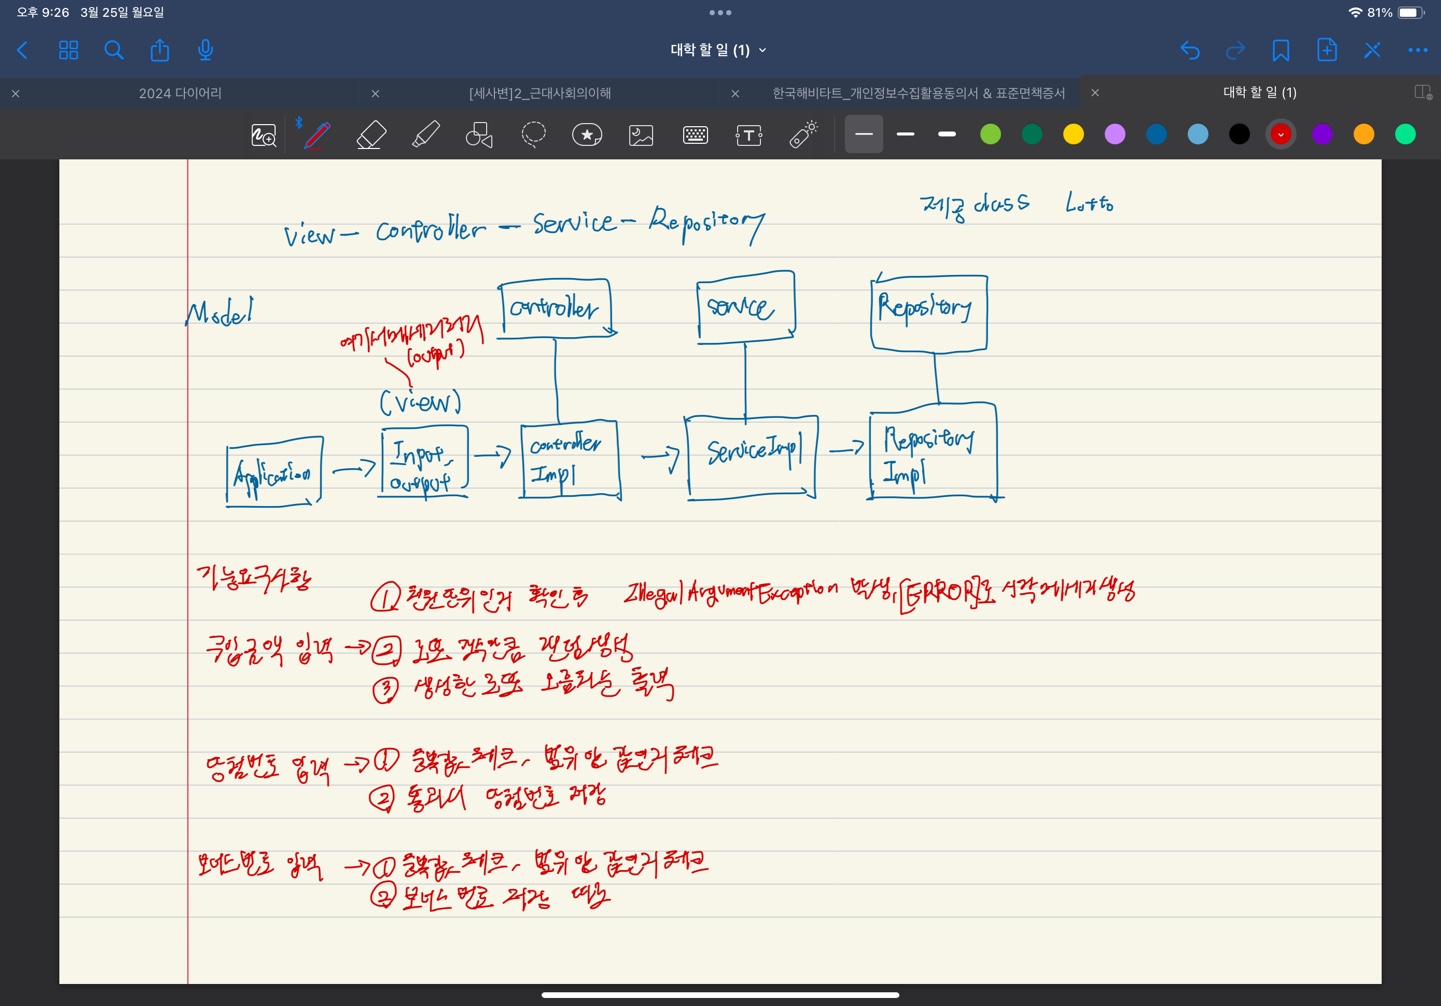 오후 9:26 3월 25일 월요일
81%
대학 할 일 (1)
2024 다이어리
[세사변]2_근대사회의이해
한국해비타트_개인정보수집활용동의서 & 표준면책증서
대학 할 일 (1)
제공 class Lotto
View - Controller - Service - Repository
Model
controller
service
Repository
여기서 메세지 처리
(output)
(View)
Application
Input,
output
controller
Impl
ServiceImpl
Repository
Impl
기능요구사항
① 천원단위인지 확인 후 IllegalArgumentException 발생, [ERROR]로 시작 메세지 생성
구입금액 입력 → ② 로또 개수만큼 랜덤생성
③ 생성한 로또 오름차순 출력
당첨번호 입력 → ① 중복값 체크, 범위 안 값인지 체크
② 통과시 당첨번호 저장
보너스번호 입력 → ① 중복값 체크, 범위 안 값인지 체크
② 보너스 번호 저장